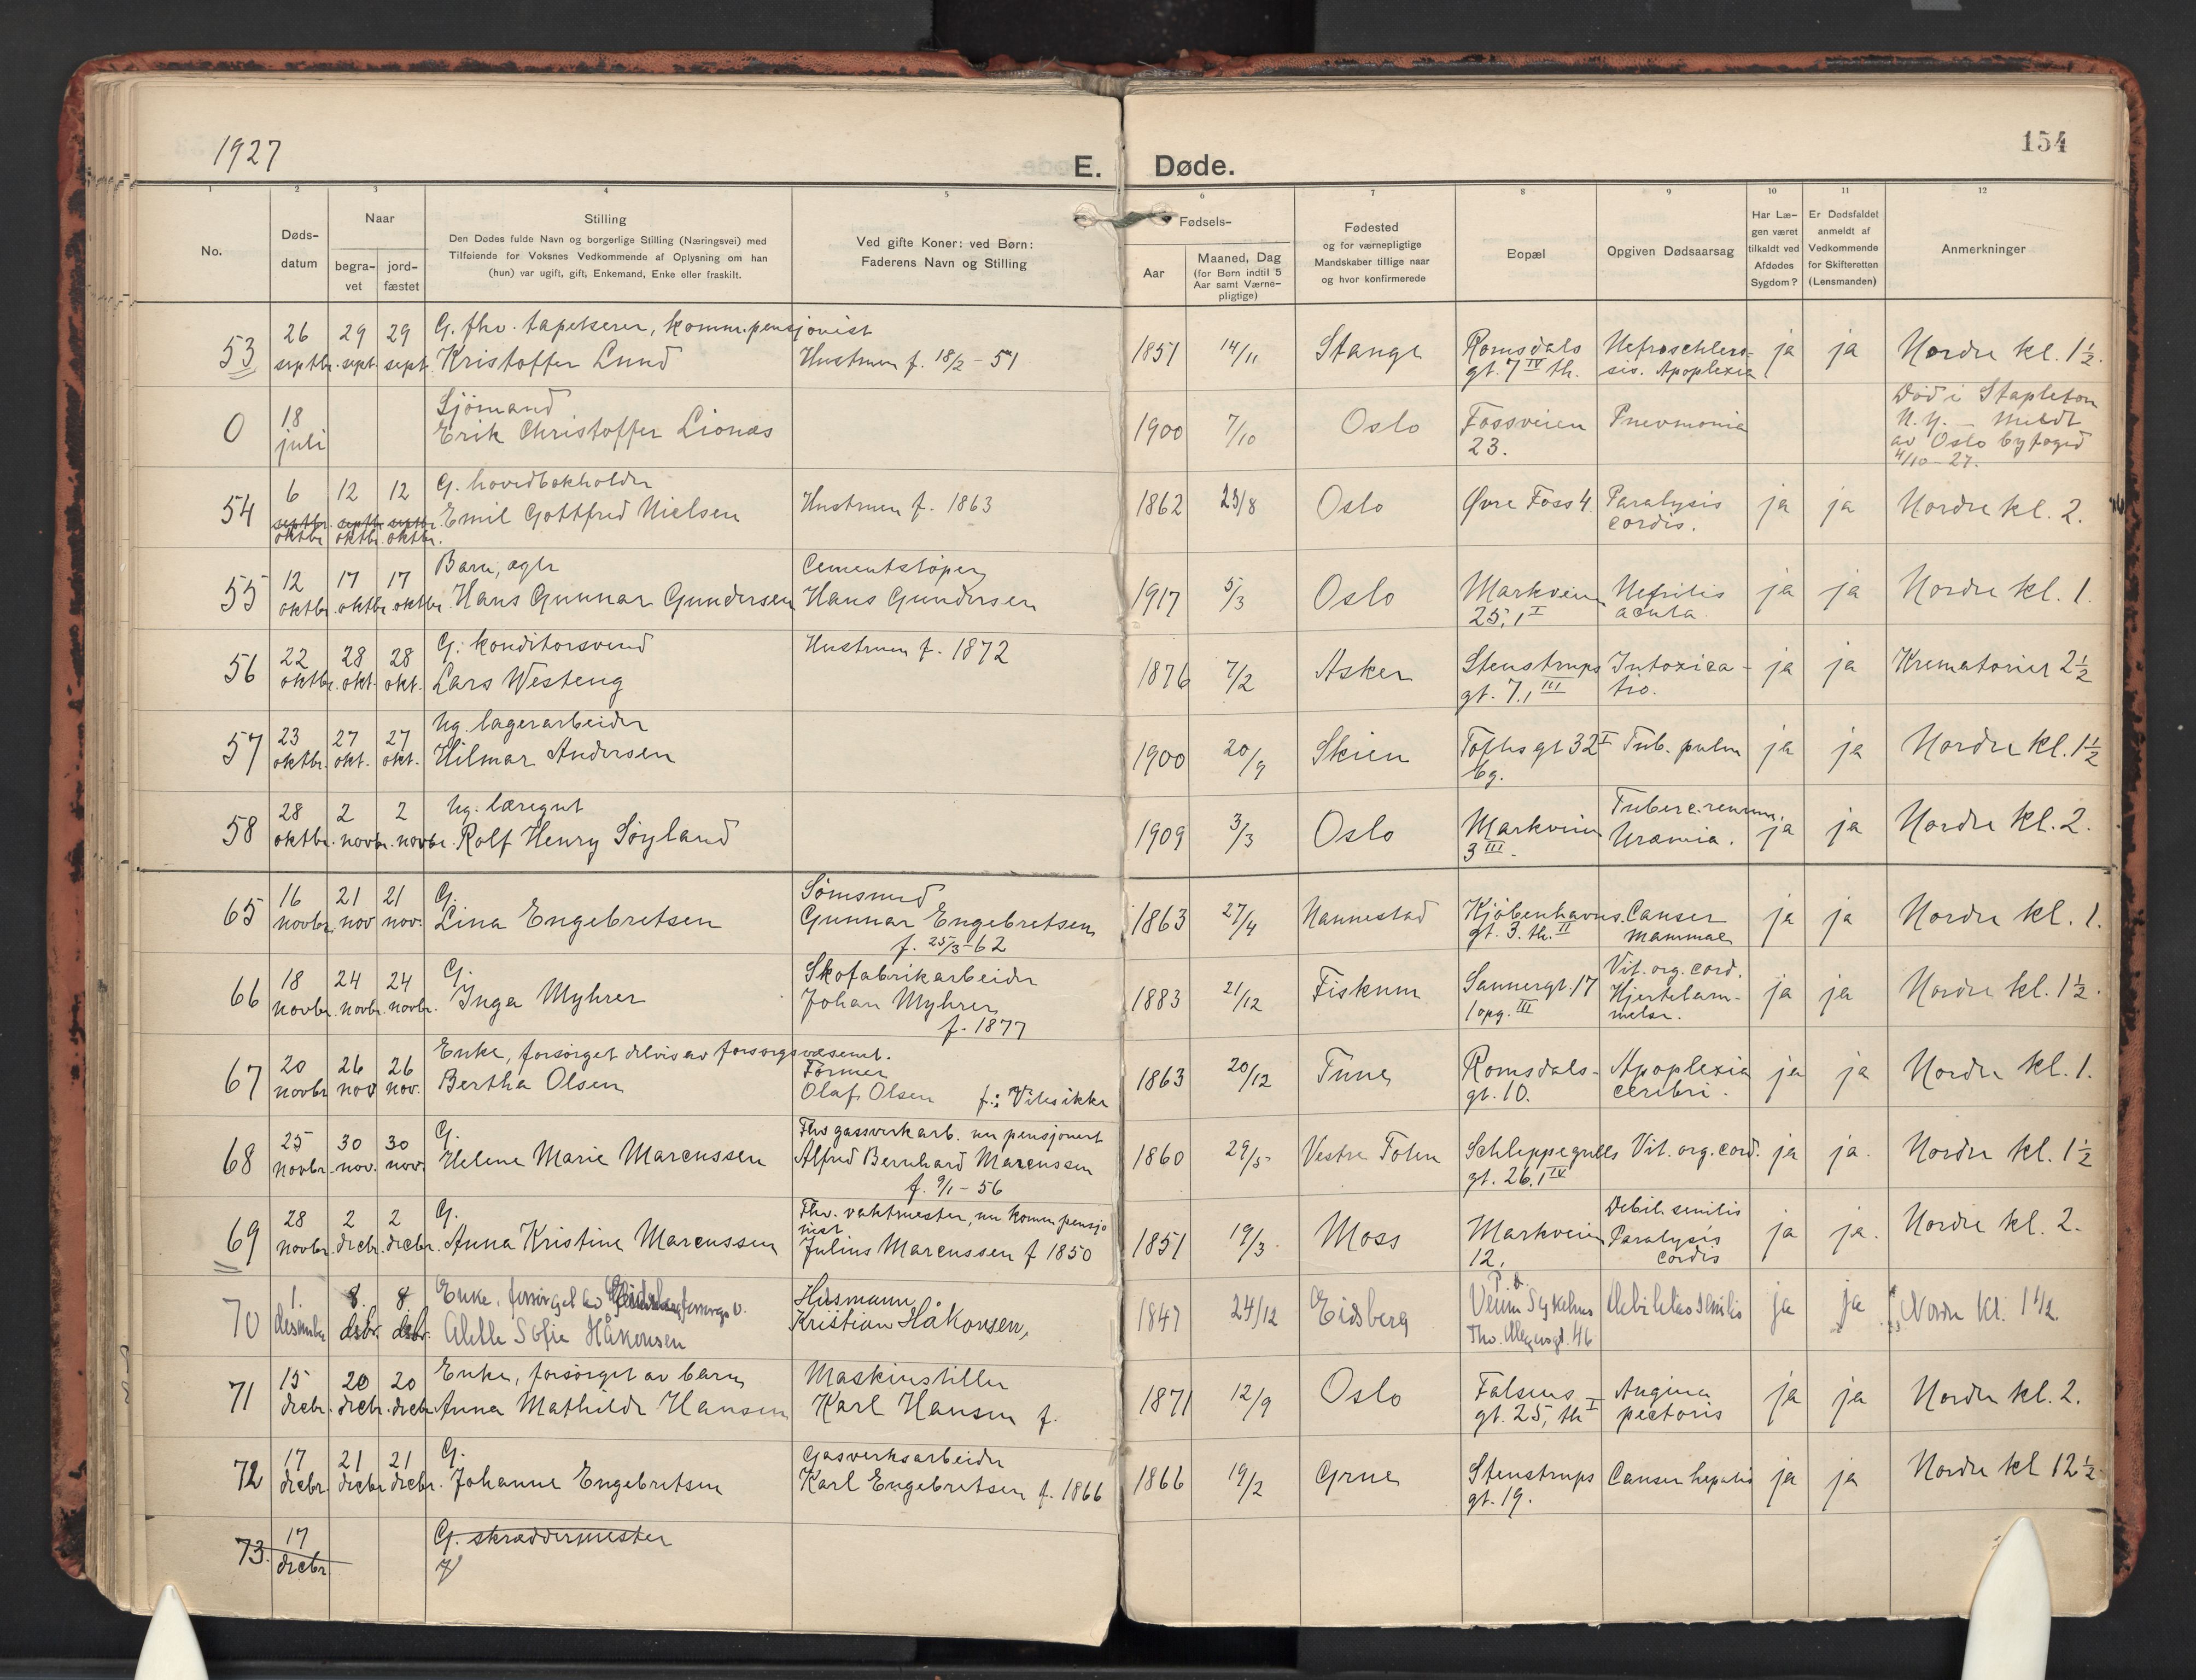 1927
E. Døde.
154
1 2 3 4 5 6 7 8 9 10 11 12
No.
Døds-
datum
Naar
begra-
vet
jord-
fæstet
Stilling
Den Dødes fulde Navn og borgerlige Stilling (Næringsvei) med
Tilføiende for Voksnes Vedkommende af Oplysning om han
(hun) var ugift, gift, Enkemand, Enke eller fraskilt.
Ved gifte Koner: ved Børn:
Faderens Navn og Stilling
Fødsels-
Aar
Maaned, Dag
(for Børn indtil 5
Aar samt Værne-
pligtige)
Fødested
og for værnepligtige
Mandskaber tillige naar
og hvor konfirmerede
Bopæl
Opgiven Dødsaarsag
Har Læ-
gen været
tilkaldt ved
Afdødes
Sygdom?
Er Dødsfaldet
anmeldt af
Vedkommende
for Skifteretten
(Lensmanden)
Anmerkninger
53 26 septbr. 29 sept. 29 sept. G. fhv. tapetserer, komm. pensjonist
Kristoffer Lund Hustruen f. 18/2 - 51 1851 14/11 Stange Romsdals
gt. 7 IV th. Nefroschlero-
sis. Apoplexia ja ja Nordre kl. 1½.
0 18 juli Sjömand
Erik Christoffer Lionæs 1900 7/10 Oslo Fossveien
23. Pneumonia Död i Stapleton
N.Y. - Meldt
av Oslo byfoged
4/10-27.
54 6 septbr. oktbr. 12 septbr. oktbr. 12 septbr. oktbr. G. hovedbokholder
Emil Gottfred Nielsen Hustruen f. 1863 1862 23/8 Oslo Øvre Foss 4. Paralysis
cordis. ja ja Nordre kl. 2.
55 12 oktbr. 17 oktbr. 17 oktbr. Barn, egte
Hans Gunnar Gundersen Cementstöper
Hans Gundersen 1917 5/3 Oslo Markveien
25, 1 I Nefritis
acuta. ja ja Nordre kl. 1.
56 22 oktbr. 28 okt. 28 okt. G. konditorsvend
Lars Westeng Hustruen f. 1872 1876 7/2 Asker Stenstrups
gt. 7, III Intoxica-
tio. ja ja Krematoriet 2½
57 23 oktbr. 27 okt. 27 okt. Ug. lagerarbeider
Hilmar Andersen 1900 20/9 Skien Toftesgt 32 I
bg. Tub. pulm ja ja Nordre kl. 1½
58 28 oktbr. 2 novbr. 2 novbr. Ug. læregut
Rolf Henry Söyland 1909 3/3 Oslo Markveien
3 III. Tuberc. renum.
Uræmia. ja ja Nordre kl. 2.
65 16 novbr. 21 nov 21 nov. G.
Lina Engebretsen Sömsmed
Gunnar Engebretsen
f. 25/3-62 1863 27/4 Nannestad Kjöbenhavns.
gt. 3. th. II Canser
mammae ja ja Nordre kl. 1.
66 18 novbr. 24 novbr. 24 novbr. G.
Inga Myhrer Skofabrikarbeider
Johan Myhrer
f. 1877 1883 21/12 Fiskum Sannergt. 17
1 opg. III Vit. org. cord.
Hjertelam-
melse. ja ja Nordre kl. 1½.
67 20 novbr 26 nov 26 nov. Enke, forsörget delvis av forsorgsvæsenet.
Bertha Olsen Former
Olaf Olsen f.: Vites ikke 1863 20/12 Tune Romsdals-
gt. 10. Apoplexia
cerebri. ja ja Nordre kl. 1.
68 25 novbr. 30 nov. 30 nov. G.
Helene Marie Marcussen Fhv gassverkarb. nu pensjonert
Alfred Bernhard Marcussen
f. 9/1-56 1860 29/5 Vestre Toten Schleppegrells
gt. 26, 1 IV Vit. org. cord. ja ja. Nordre kl. 1½
69 28 novbr. 2 decbr. 2 decbr. G.
Anna Kristine Marcussen Fhv. vaktmester, nu komm pensjo
nist
Julius Marcussen f 1850 1851 19/3 Moss Markveien
12. Debil. senilis
Paralysis
cordis ja ja. Nordre kl. 2.
70 1. desember 8. desbr. 8 desbr. Enke, forsörget av forsorgsv.
Alelle Sofie Håkonsen Husmann
Kristian Håkonsen, 1847 24/12 Eidsberg P. d.
Veum Sykehus
Thv. Meyersgt. 46 Debilitas senilis ja ja Nordre kl. 1½.
71 15 decbr. 20 decbr. 20 decbr. Enke, forsörget av barn
Anna Mathilde Hansen Maskinstiller
Karl Hansen f. 1871 12/9 Oslo Falsens
gt. 25, th I Angina
pectoris ja ja Nordre kl. 2.
72 17 decbr. 21 decbr 21 decbr. G.
Johanne Engebretsen Gasverksarbeider
Karl Engebretsen f. 1866 1866 19/2 Grue Stenstrups
gt. 19. Canser hepatis ja ja Nordre kl 12½.
73. 17 decbr G. skræddermester